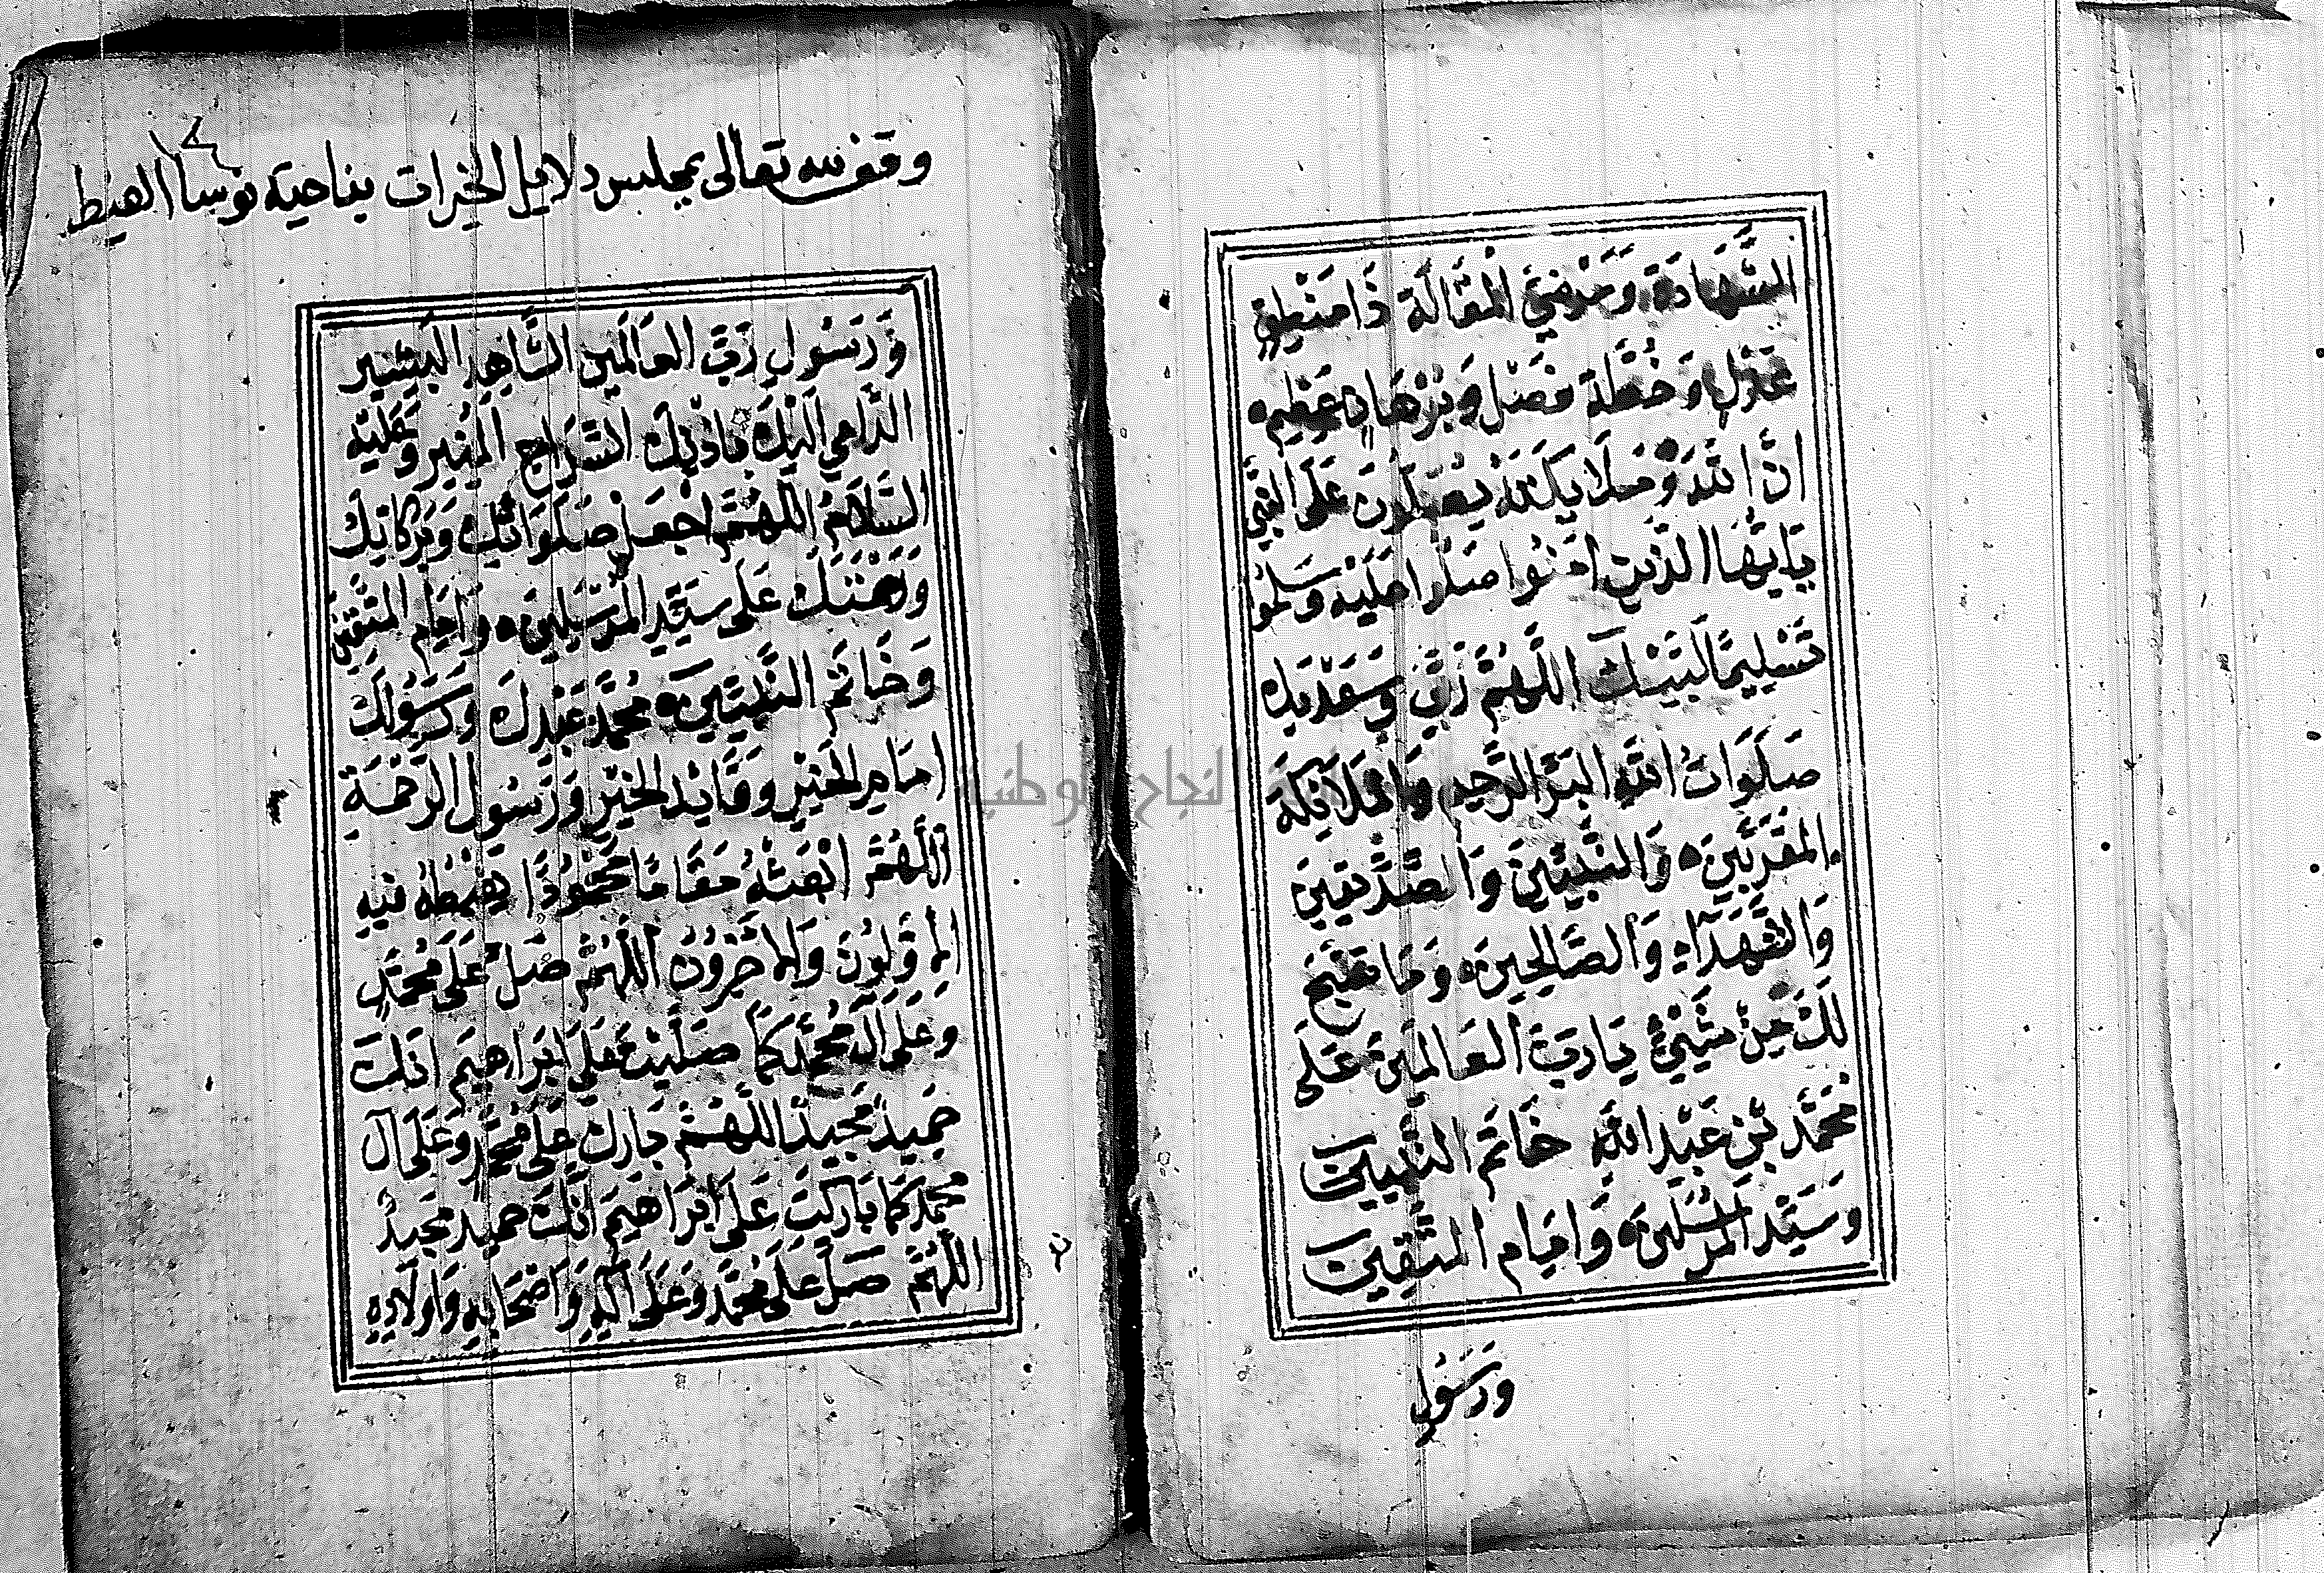 الشَّهَادَةِ وَمَرْضِيَّ الْمَقَالَةِ ذَا مَنْطِقٍ
عَدْلٍ وَخُطَّةٍ فَصْلٍ وَبُرْهَانٍ عَظِيمٍ
اِنَّ اللّٰهَ وَمَلَايِكَتَهُ يُصَلُّونَ عَلَى النَّبِيِّ
يَاَيُّهَا الَّذِينَ اٰمَنُوا صَلُّوا عَلَيْهِ وَسَلِّمُوا
تَسْلِيمًا لَبَّيْكَ اللَّهُمَّ رَبِّي وَسَعْدَيْكَ
صَلَوَاتُ اللّٰهِ البَرِّ الرَّحِيمِ وَالْمَلَائِكَةِ
الْمُقَرَّبِينَ وَالنَّبِيِّينَ وَالصِّدِّيقِينَ
وَالشُّهَدَاءِ وَالصَّالِحِينَ وَمَا سَبَّحَ
لَكَ مِنْ شَيْئٍ يَارَبَّ الْعَالَمِينَ عَلَى
مُحَمَّدِ بْنِ عَبْدِ اللّٰهِ خَاتَمِ النَّبِيِّينَ
وَسَيِّدِ الْمُرْسَلِينَ وَاِمَامِ الْمُتَّقِينَ
وَرَسُولِ
وقف لله تعالى بمجلس دلايل الخيرات بناحية نوسا الغيط
وَرَسُولِ رَبِّ الْعَالَمِينَ الشَّاهِدِ الْبَشِيرِ
الدَّاعِي اِلَيْكَ بِاِذْنِكَ السِّرَاجِ الْمُنِيرِ وَعَلَيْهِ
السَّلَامُ اَللَّهُمَّ اجْعَلْ صَلَوَاتِكَ وَبَرَكَاتِكَ
وَرَحْمَتَكَ عَلَى سَيِّدِ الْمُرْسَلِينَ وَاِمَامِ الْمُتَّقِينَ
وَخَاتَمِ النَّبِيِّينَ مُحَمَّدٍ عَبْدِكَ وَرَسُولِكَ
اِمَامِ الْخَيْرِ وَقَائِدِ الْخَيْرِ وَرَسُولِ الرَّحْمَةِ
اَللَّهُمَّ ابْعَثْهُ مَقَامًا مَحْمُودًا يَغْبِطُهُ فِيهِ
الْاَوَّلُونَ وَالْاٰخِرُونَ اَللَّهُمَّ صَلِّ عَلَى مُحَمَّدٍ
وَعَلَى آلِ مُحَمَّدٍ كَمَا صَلَّيْتَ عَلَى اِبْرَاهِيمَ اِنَّكَ
حَمِيدٌ مَجِيدٌ اللَّهُمَّ بَارِكْ عَلَى مُحَمَّدٍ وَعَلَى آلِ
مُحَمَّدٍ كَمَا بَارَكْتَ عَلَى اِبْرَاهِيمَ اِنَّكَ حَمِيدٌ مَجِيدٌ
اللَّهُمَّ صَلِّ عَلَى مُحَمَّدٍ وَعَلَى آلِهِ وَاَصْحَابِهِ وَاَوْلَادِهِ
النجاح الوطنية